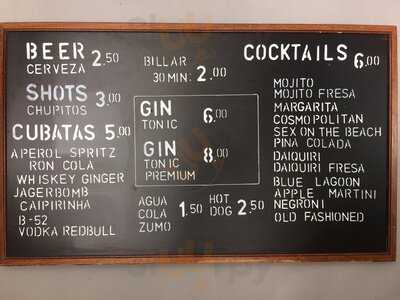 BEER 2.50
CERVEZA
SHOTS 3.00
CHUPITOS
CUBATAS 5.00
APEROL SPRITZ
RON COLA
WHISKEY GINGER
JAGERBOMB
CAIPIRINHA
B-52
VODKA REDBULL
BILLAR
30 MIN: 2.00
GIN
TONIC 6.00
GIN
TONIC 8.00
PREMIUM
AGUA
COLA 1.50
ZUMO
HOT
DOG 2.50
COCKTAILS 6.00
MOJITO
MOJITO FRESA
MARGARITA
COSMOPOLITAN
SEX ON THE BEACH
PINA COLADA
DAIQUIRI
DAIQUIRI FRESA
BLUE LAGOON
APPLE MARTINI
NEGRONI
OLD FASHIONED